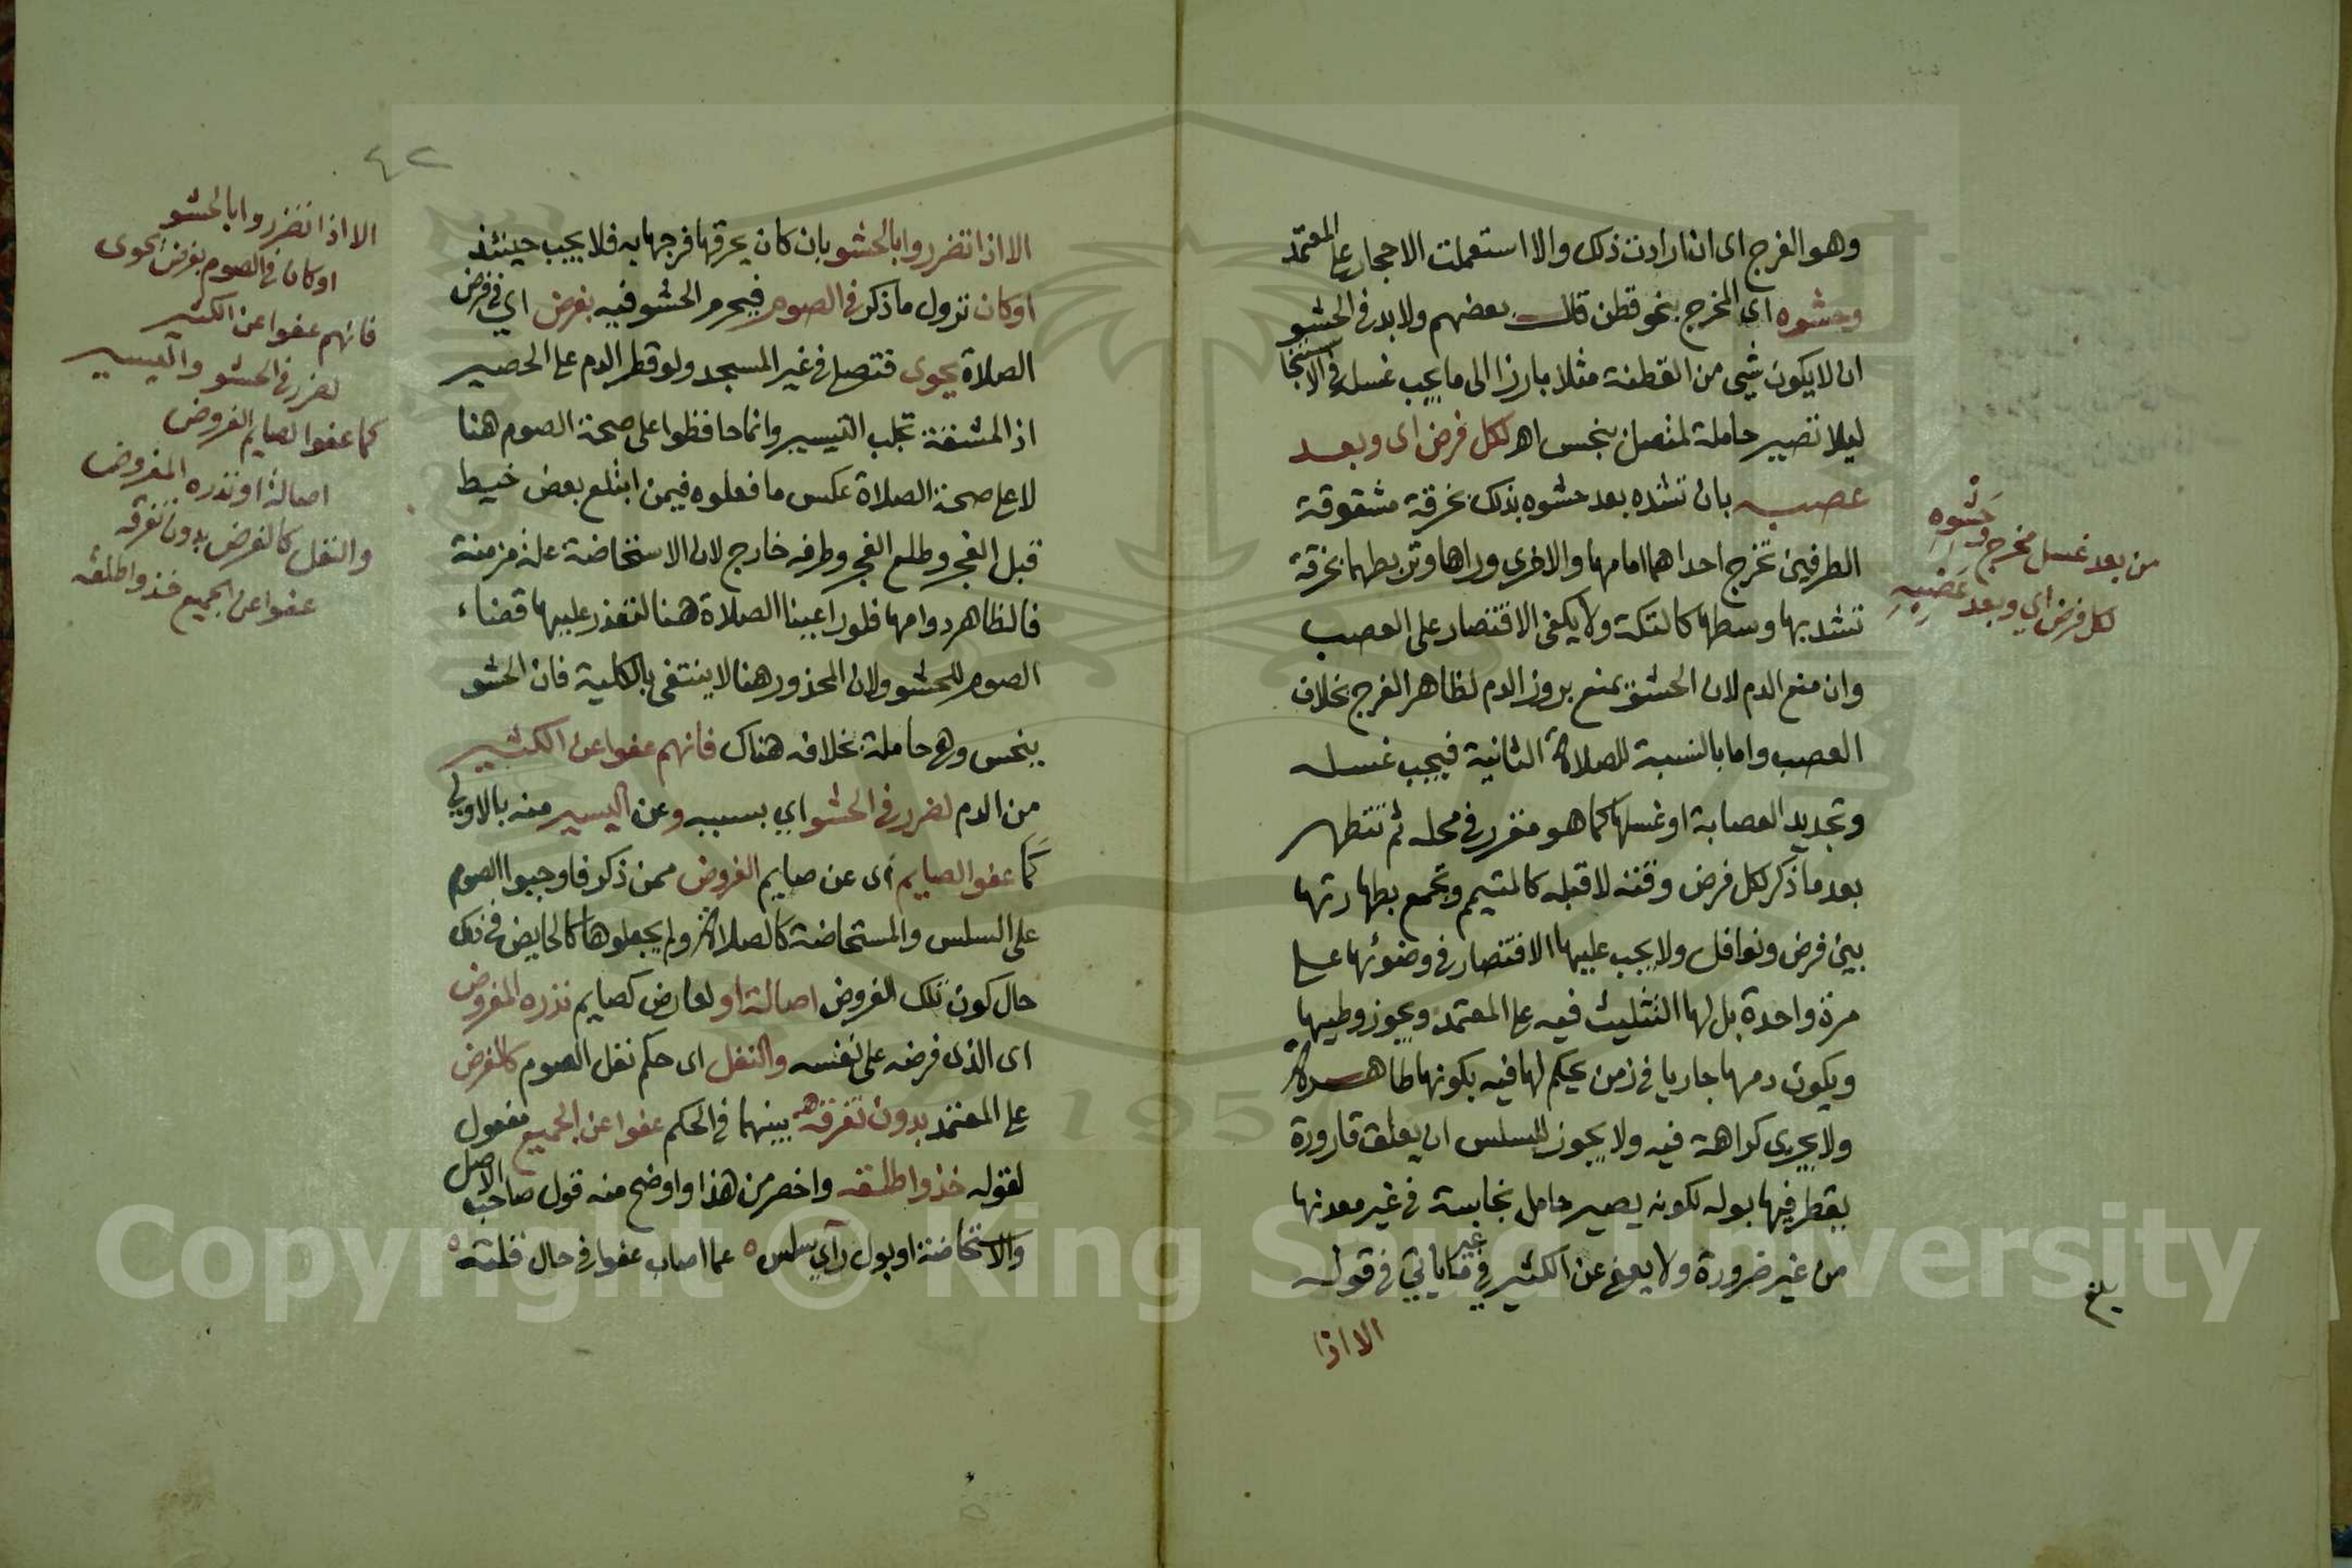 وهو الفرج اى ان ارادت ذلك والا استعملت الاحجار على المعتمد
وحشوه اي المخرج بنحو قطن قال بعضهم ولا بد في الحشو
ان لا يكون شي من القطنة مثلا بارزا الى ما يجب غسله في الاستنجا
ليلا تصير حاملة لمتصل بنجس اهـ لكل فرض اى وبعد
عصبه بان تشده بعد حشوه بذلك بخرقة مشقوقة
الطرفين تخرج احداهما امامها والاخرى وراها وتربطهما بخرقة
تشد بها وسطها كالتكة ولا يكفى الاقتصار على العصب
وان منع الدم لان الحشو يمنع بروز الدم لظاهر الفرج بخلاف
العصب واما بالنسبة للصلاة الثانية فيجب غسله
وتجديد العصابة او غسلها كما هو مقرر في محله ثم تتطهر
بعد ما ذكر لكل فرض وقته لا قبله كالمتيم وتجمع بطهارتها
بين فرض ونوافل ولا يجب عليها الاقتصار في وضوئها على
مرة واحدة بل لها التثليث فيه على المعتمد ويجوز وطيها
ويكون دمها جاريا في زمن يحكم لها فيه بكونها طاهرة
ولا يجرى كراهة فيه ولا يجوز للسلس ان يعلق قارورة
يقطر فيها بوله لكونه يصير حامل نجاسة في غير معدنها
من غير ضرورة ولا يعفى عن الكثير في غير ما ياتي في قوله
الا اذا
من بعد غسل مخرج وحشوه
لكل فرض اي وبعد عصبه
بلغ
٤٢
الا اذا تضرروا بالحشو بان كان يحرقها فرجها به فلا يجب حينئذ
او كان نزول ما ذكر في الصوم فيحرم الحشو فيه بفرض اي في فرض
الصلاة يحوى فتصلى في غير المسجد ولو قطر الدم على الحصير
اذ المشقة تجلب التيسير وانما حافظوا على صحة الصوم هنا
لا على صحة الصلاة عكس ما فعلوه فيمن ابتلع بعض خيط
قبل الفجر وطلع الفجر وطرفه خارج لان الاستحاضة علة مزمنة
فالظاهر دوامها فلو راعينا الصلاة هنا لتعذر عليها قضاء
الصوم للحشو ولان المحذور هنا لا ينتفى بالكلية فان الحشو
ينجس وهي حاملة بخلافه هناك فانهم عفوا عن الكثير
من الدم لضرر في الحشو اي بسببه وعن اليسير منه بالاولى
كما عفوا لصايم أى عن صايم الفروض ممن ذكر فاوجبوا الصوم
على السلس والمستحاضة كالصلاة ولم يجعلوها كالحايض في ذلك
حال كون تلك الفروض اصالة او لعارض كصايم نذره المفروض
اى الذى فرضه على نفسه والنفل اى حكم نفل الصوم كالفرض
على المعتمد بدون تفرقه بينهما في الحكم عفوا عن الجميع مفعول
لقوله خذ واطلقه واخصر من هذا واوضح منه قول صاحب الاصل
والاستحاضة او بول رآي سلس ه عما اصاب عفوا في حال قلته ه
الا اذا تضرروا بالحشو
او كان في الصوم بفرض يحوى
فانهم عفوا عن الكثير
لضرر في الحشو واليسير
كما عفوا لصايم الفروض
اصالة او نذره المفروض
والنفل كالفرض بدون تفرقه
عفوا عن الجميع خذ واطلقه
Copyright © King Saud University
1957